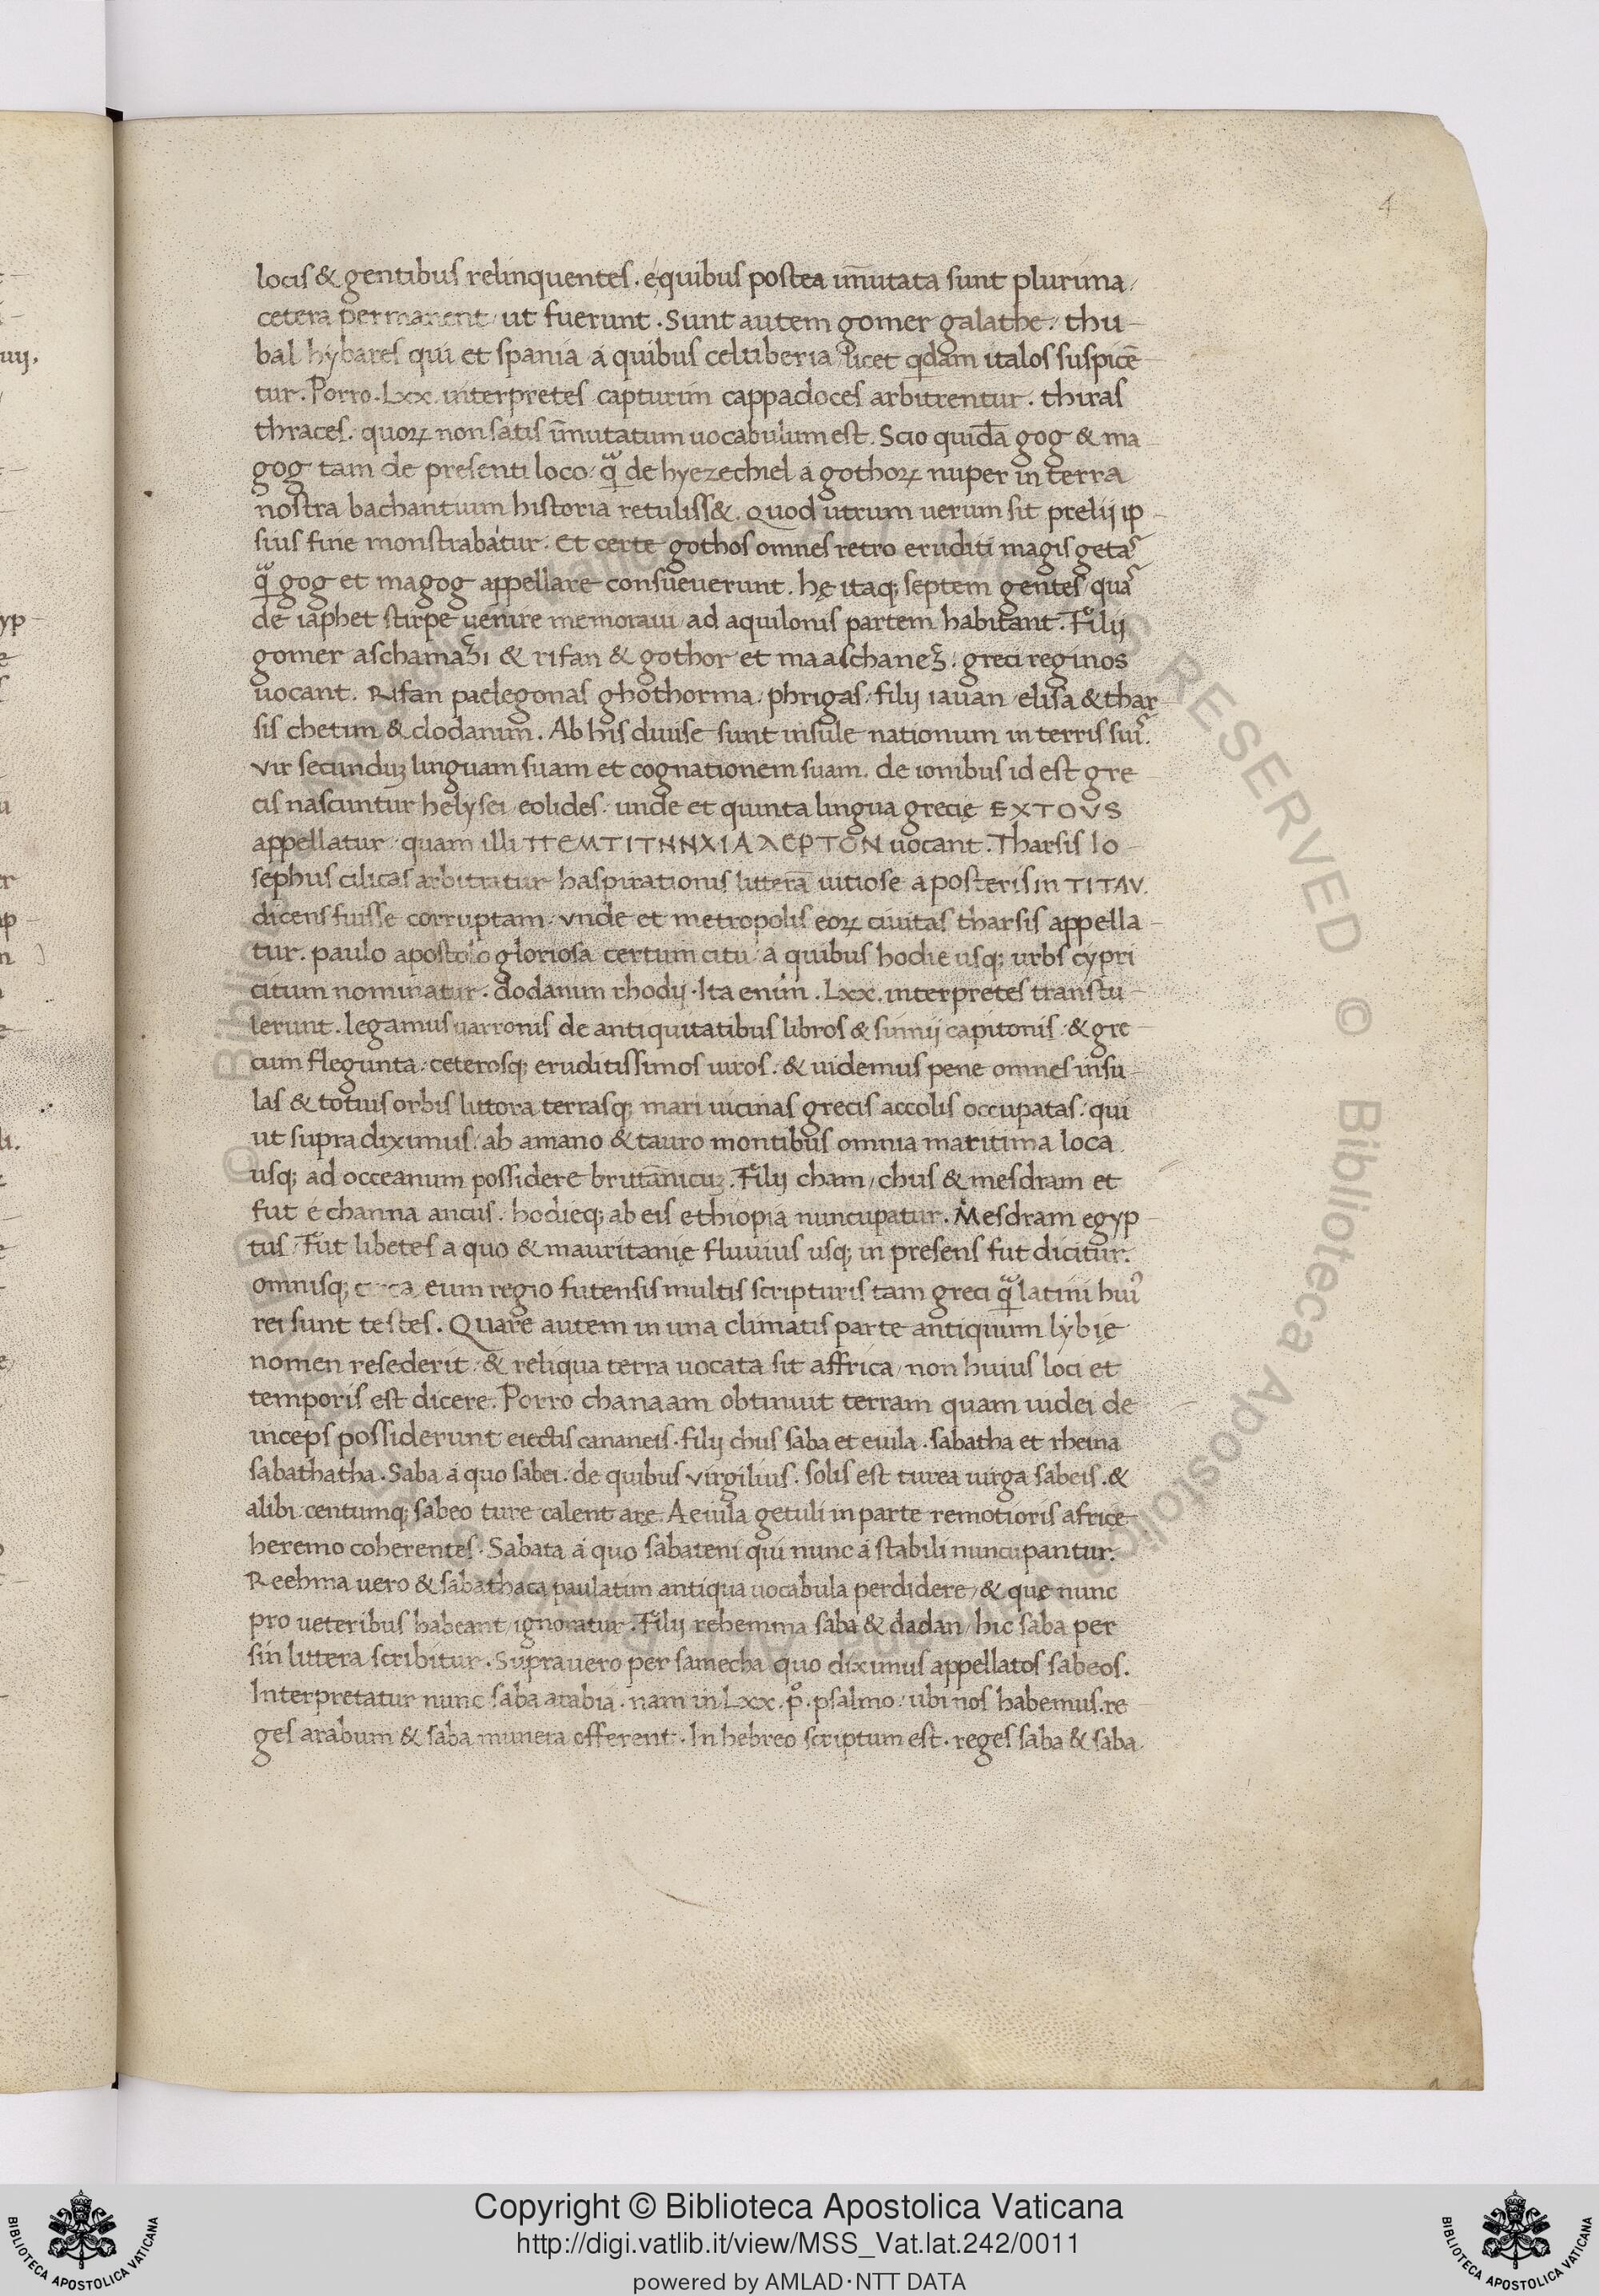 4
locis & gentibus relinquentes. ęquibus postea im̄utata sunt plurima,
cetera permanent, ut fuerunt. Sunt autem gomer galathe, thu-
bal hybares qui et spania, a quibus celtiberia, licet q̄dam italos suspicē-
tur. Porro. Lxx. interpretes capturim cappadoces arbitrentur. thiras
thraces. quoꝝ non satis im̄utatum uocabulum est. Scio quidā gog & ma-
gog tam de presenti loco, qᵃ̄ de hyezechiel a gothoꝝ nuper in terra
nostra bachantium historia retuliss&. Quod utrum uerum sit prelij ip-
sius fine monstrabatur. Et certe gothos omnes retro eruditi magis getas
qᵃ̄ gog et magog appellare consueuerunt. hę itaq; septem gentes, quas
de iaphet stirpe uenire memoraui, ad aquilonis partem habitant. Filij
gomer aschamaʒi & rifan & gothor et ma aschaneʒ. greci reginos
uocant. Rifan paelegonas ghothorma, phrigas, filij iauan, elisa & thar
sis chetim & dodanim. Ab his diuise sunt insule nationum in terris suis.
Vir secunduʒ linguam suam et cognationem suam. de ionibus id est gre-
cis nascuntur helysei, eolides. unde et quinta lingua grecię EXTOVS
appellatur, quam illi ΠΕΜΤΙΤΗΝΧΙΑΛΕΡΤΟΝ uocant. Tharsis Io-
sephus cilicas arbitratur haspirationis litterā uitiose a posteris in TITAV.
dicens fuisse corruptam. Vnde et metropolis eoꝝ ciuitas tharsis appella-
tur. paulo apostolo gloriosa certum citu, a quibus hodie usq; urbs cypri
citum nominatur. dodanim rhodij. Ita enim. Lxx. interpretes transtu-
lerunt. legamus uarronis de antiquitatibus libros & sinnij capitonis, & gre-
cum flegunta, ceterosq; eruditissimos uiros. & uidemus pene omnes insu-
las & totius orbis littora terrasq; mari uicinas grecis accolis occupatas, qui
ut supra diximus, ab amano & tauro montibus omnia maritima loca
usq; ad occeanum possidere brittānicuʒ. Filij cham, chus & mesdram et
fut e channa ancus. hodieq; ab eis ethiopia nuncupatur. Mesdram egyp-
tus, Fut libetes a quo & mauritanię fluuius usq; in presens fut dicitur.
omnisq; circa eum regio futensis multis scripturis tam greci qᵃ̄ latini hui᾿
rei sunt testes. Quare autem in una climatis parte antiquum lybię
nomen resederit, & reliqua terra uocata sit affrica, non huius loci et
temporis est dicere. Porro chanaam obtinuit terram quam iudei de
inceps possiderunt eiectis cananeis. filij chus saba et euila. sabatha et rhema
sabathatha. Saba a quo sabei. de quibus virgilius. solis est turea uirga sabeis. &
alibi centumq; sabeo ture calent arę. A euila getuli in parte remotioris africe
heremo coherentes. Sabata a quo sabateni qui nunc a stabili nuncupantur.
Reehma uero & sabathaca paulatim antiqua uocabula perdidere, & quę nunc
pro ueteribus habeant, ignoratur. Filij rehemma saba & dadan, hic saba per
sin littera scribitur. Supra uero per samecha quo diximus appellatos sabeos.
Interpretatur nunc saba arabia. nam in Lxx. pº. psalmo, ubi nos habemus. re
ges arabum & saba munera offerent. In hebreo scriptum est. reges saba & saba
Copyright © Biblioteca Apostolica Vaticana
http://digi.vatlib.it/view/MSS_Vat.lat.242/0011
powered by AMLAD·NTT DATA